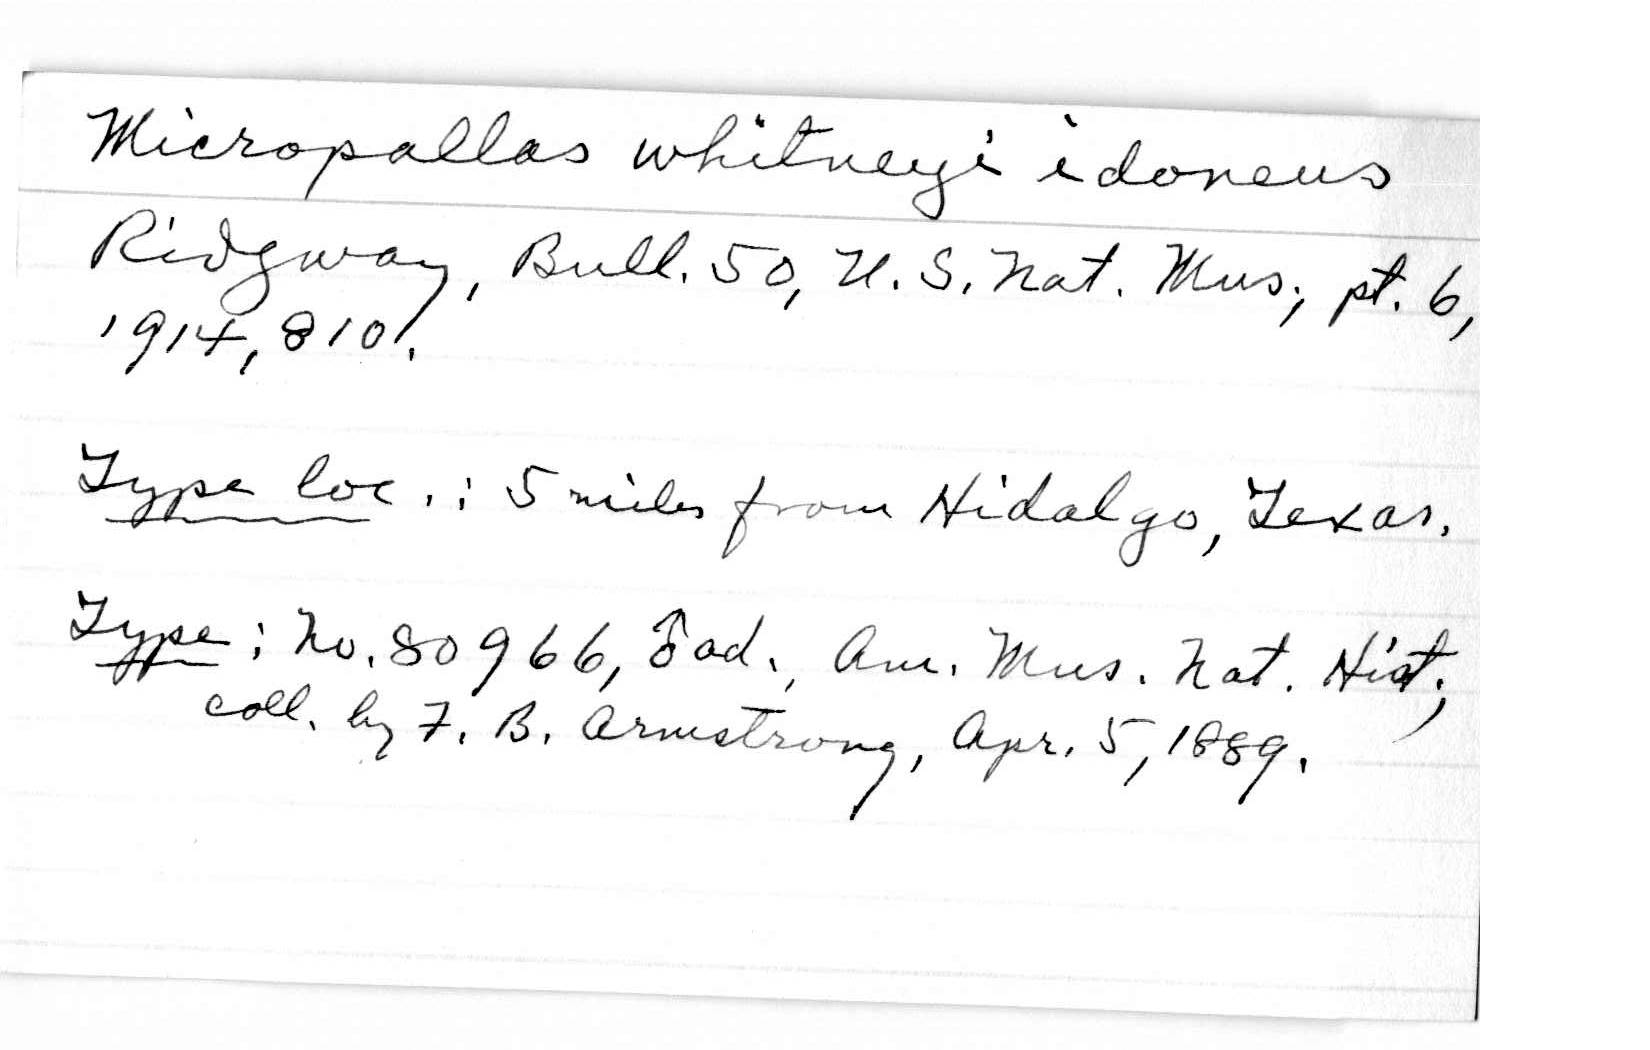 Micropallas whitneyi idoneus
Ridgway, Bull. 50, U.S. Nat. Mus., pt. 6,
1914, 810.
Type loc.: 5 miles from Hidalgo, Texas.
Type: No. 80966, ♂ ad., Am. Mus. Nat. Hist.;
coll. by F. B. Armstrong, Apr. 5, 1889.